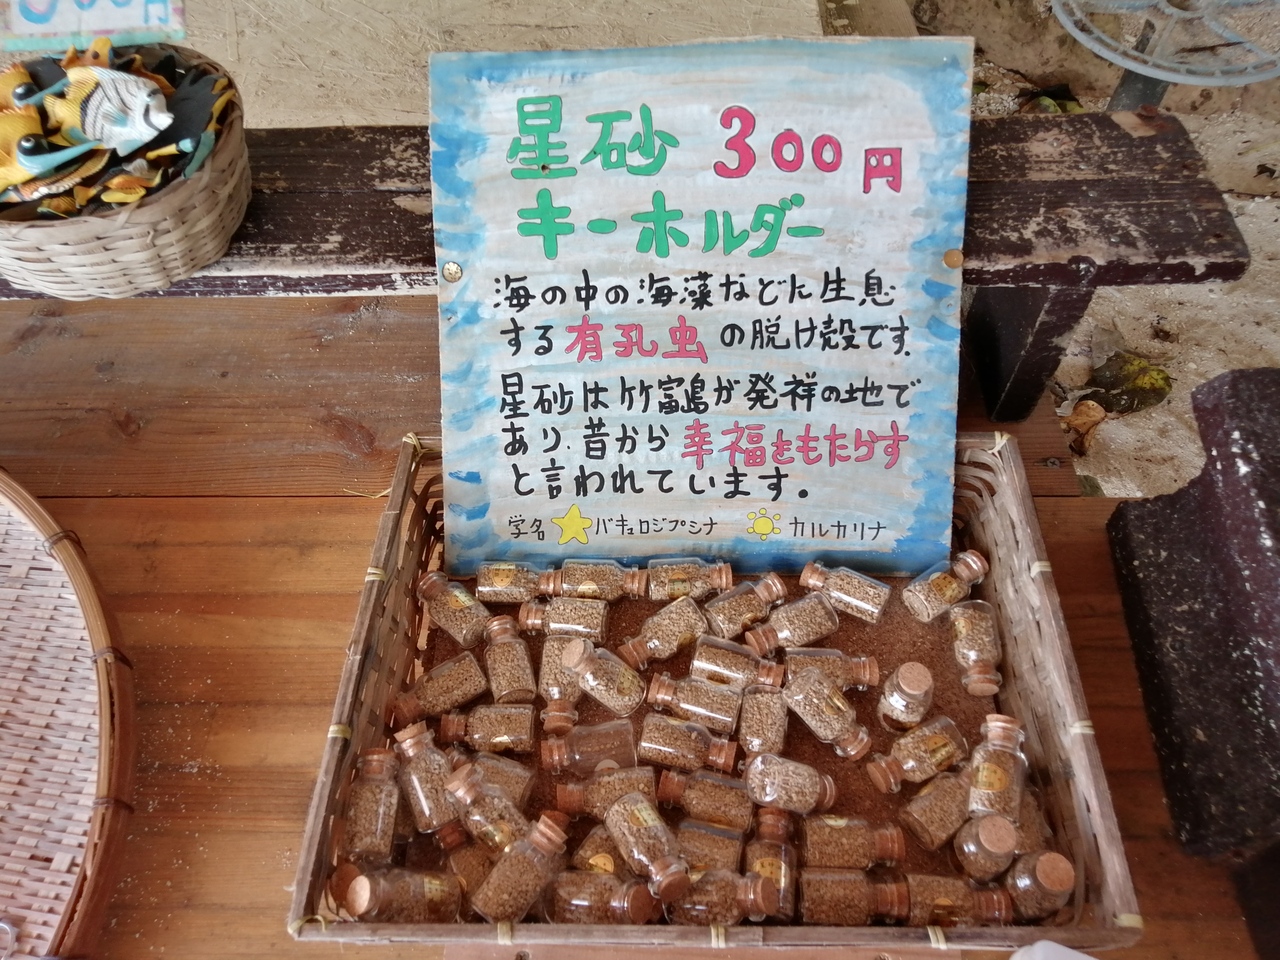 300円
星砂 300円
キーホルダー
海の中の海藻などに生息
する有孔虫の脱け殻です。
星砂は竹富島が発祥の地で
あり、昔から幸福をもたらす
と言われています。
学名 バキュロジプシナ カルカリナ